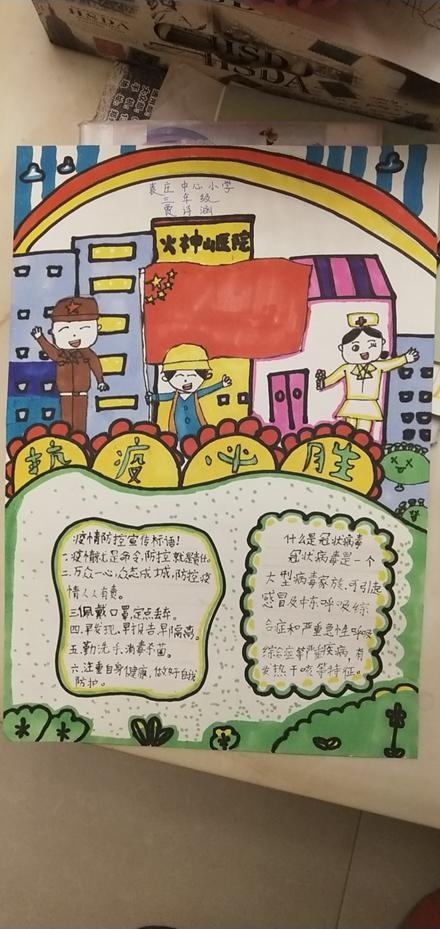 HSDA
HSDA
袁庄中心小学
三年级
贾诗涵
火神山医院
抗疫必胜
疫情防控宣传标语!
一.疫情就是命令,防控就是责任。
二.万众一心,众志成城,防控疫
情人人有责。
三佩戴口罩,定点丢弃。
四.早发现.早报告.早隔离。
五.勤洗手.消毒杀菌。
六.注重自身健康,做好自我
防护。
什么是冠状病毒
冠状病毒是一个
大型病毒家族,可引起
感冒及中东呼吸综
合征和严重急性呼吸
综合征等严重疾病,有
发热干咳等特征。